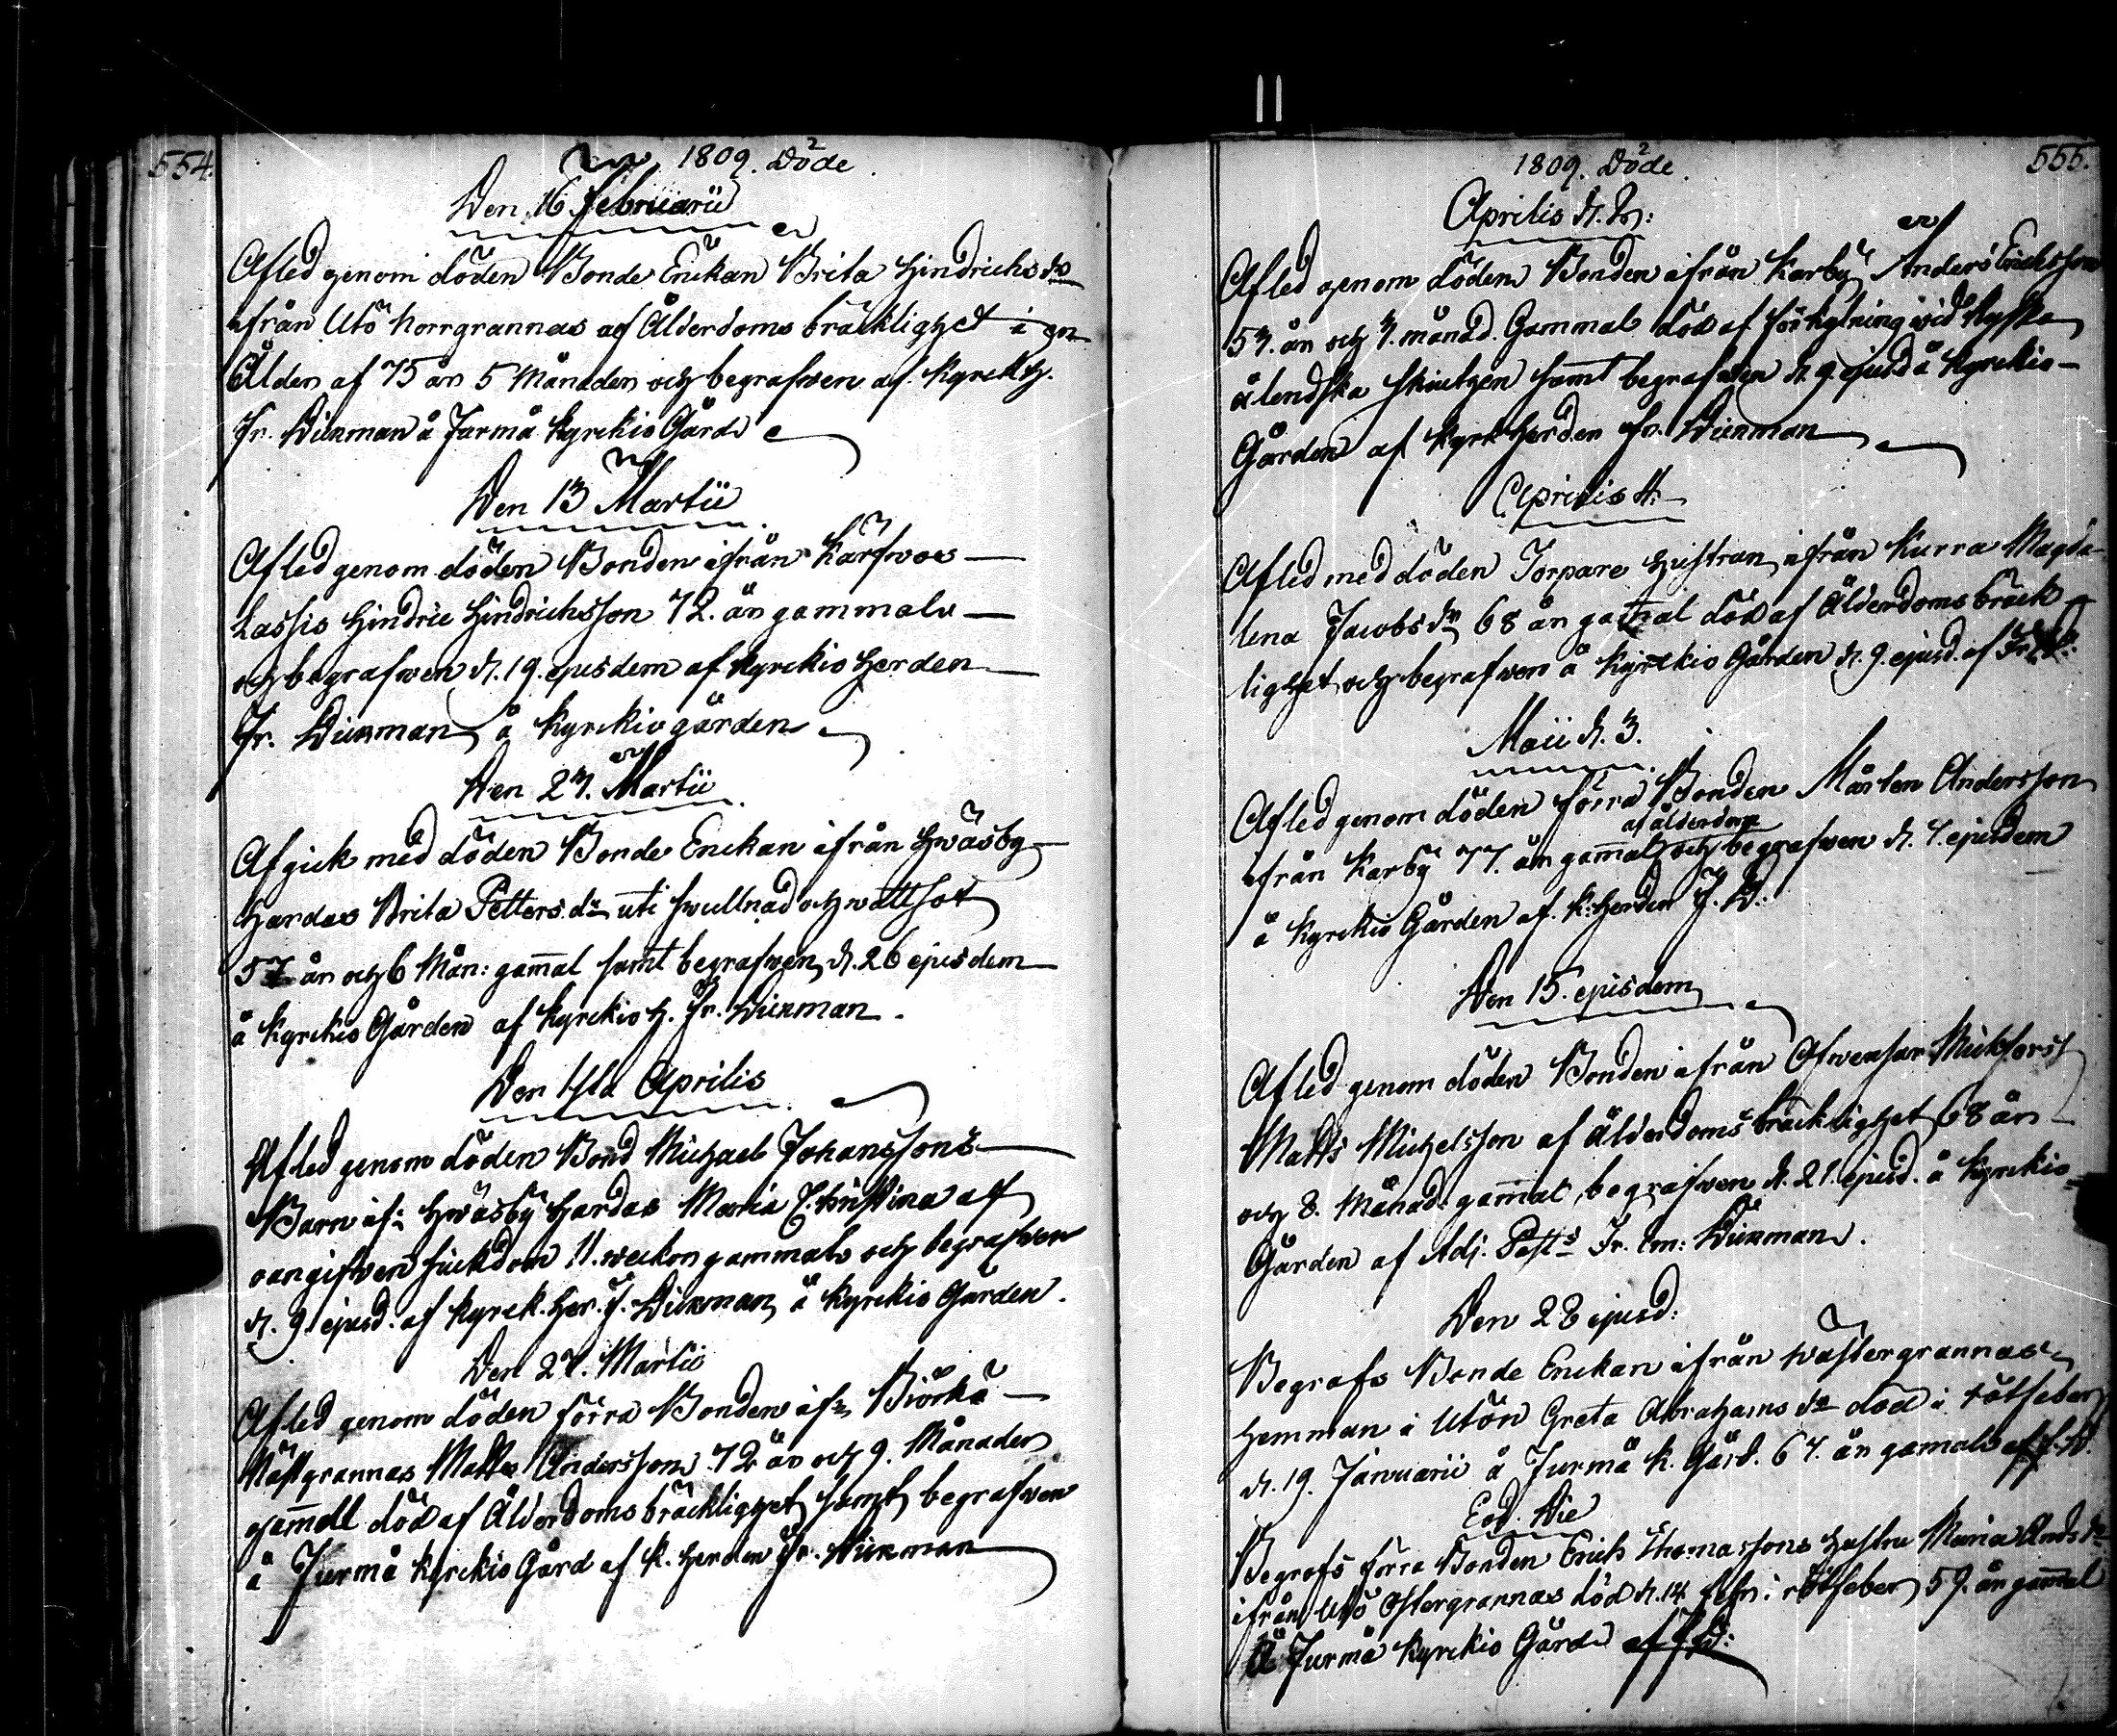 554.
1809. Döde.
Den 16 Februarii
Afled genom döden Bonde Enckan Brita Hindrichs dr
ifrån Utö Norrgrannas af Ålderdoms bräcklighet i en
Ålder af 75 år 5 Månader och begrafwen af Kyrckh.
Fr. Wikman å Jurmå Kyrckio Gård
Den 13 Martii
Afled genom döden Bonden ifrån
Lassis Hindric Hindrichsson 72. år gammal
och begrafwen d. 19. ejusdem af Kyrckio Herden
Fr. Wikman å Kyrckiogården
Den 23. Martii
Afgick med döden Bonde Enckan ifrån Hwäsby
Hardas Brita Petters dr uti swullnad och wattsot
57 år och 6 Mån: gam̄al samt begrafwen d. 26 ejusdem
å Kyrckio Gården af Kyrckio H. Fr. Wikman.
Den 1sta Aprilis
Afled genom döden Bond Michael Johanssons
Barn if: Hwäsby Hardas Maria Christina af
oangifwen siuckdom 11. weckor gammal och begrafwen
d. 9. ejusd. af Kyrck. Her. F. Wikman å Kyrckio Gården.
Den 27. Martii
Afled genom döden förra Bonden ifn Biörkö
Nästgrannas Matts Andersson 72 år och 9. Månader
gam̄all död af Ålderdoms bräcklighet samt begrafwen
å Jurmå Kyrckio Gård af K. Herden Fr. Wikman
1809. Döde.
555.
Aprilis d. 3:
Afled genom döden Bonden ifrån Karby Anders Ericksson
53. år och 3. månad. Gammal död af förkylning wid Ryska
ålendska skiutzen samt begrafwen d. 9. ejusd å Kyrckio-
Gården af KyrkHerden Fr. Wikman
Aprilis 4.
Afled med döden Torpare Hustrun ifrån Kurra Magda-
lena Jacobs dr 68 år gam̄al död af Ålderdoms bräck
lighet och begrafwen å Kyrckio Gården d. 9. ejusd. af Fr. W.
Maii d. 3.
Afled genom döden förra Bonden Mårten Andersson
af ålderdom
ifrån Karby 77. år gam̄al och begrafwen d. 7. ejusdem
å Kyrckio Gården af K: Herden F. W.
Den 15. ejusdem
Afled genom döden Bonden ifrån
Matts Michelsson af Ålderdoms bräcklighet 68 år
och 8. Månad. gam̄al, begrafwen d. 21. ejusd. å Kyrckio-
Gården af Adj. Past:s Fr. Em: Wikman.
Den 28 ejusd:
Begrafs Bonde Enckan ifrån Wästergrannas
Hemman i Utön Greta Abrahams dr död i rötfeber
d. 19. Januarii å Jurmå K. Gård. 67. år gamal af F. W.
Eod. Die
Begrofs förra Bonden Erich Thomassons Hustru Maria Ands dr
ifrån Utö Östergrannas död d. 14 Febr: i rötfeber 59. år gam̄al
Å Jurmå Kyrckio Gård af F. W: